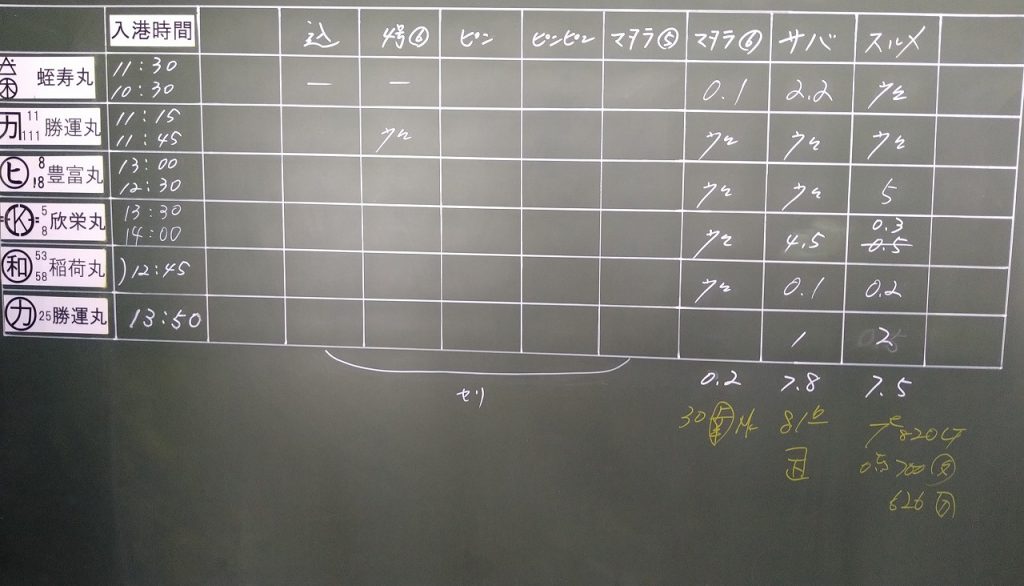 入港時間 込 4号⑥ ピン ピンピン マダラ⑤ マダラ⑥ サバ スルメ
蛭寿丸 11:30 10:30 ー ー 0.1 2.2 ケム
カ 11 111 勝運丸 11:15 11:45 ケム ケム ケム ケム
ヒ 8 18 豊富丸 13:00 12:30 ケム ケム 5
K 5 8 欣栄丸 13:30 14:00 ケム 4.5 0.3 0.5
和 53 58 稲荷丸 12:45 ケム 0.1 0.2
カ 25 勝運丸 13:50 1 2
セリ
0.2 7.8 7.5
30 81
820
700
626